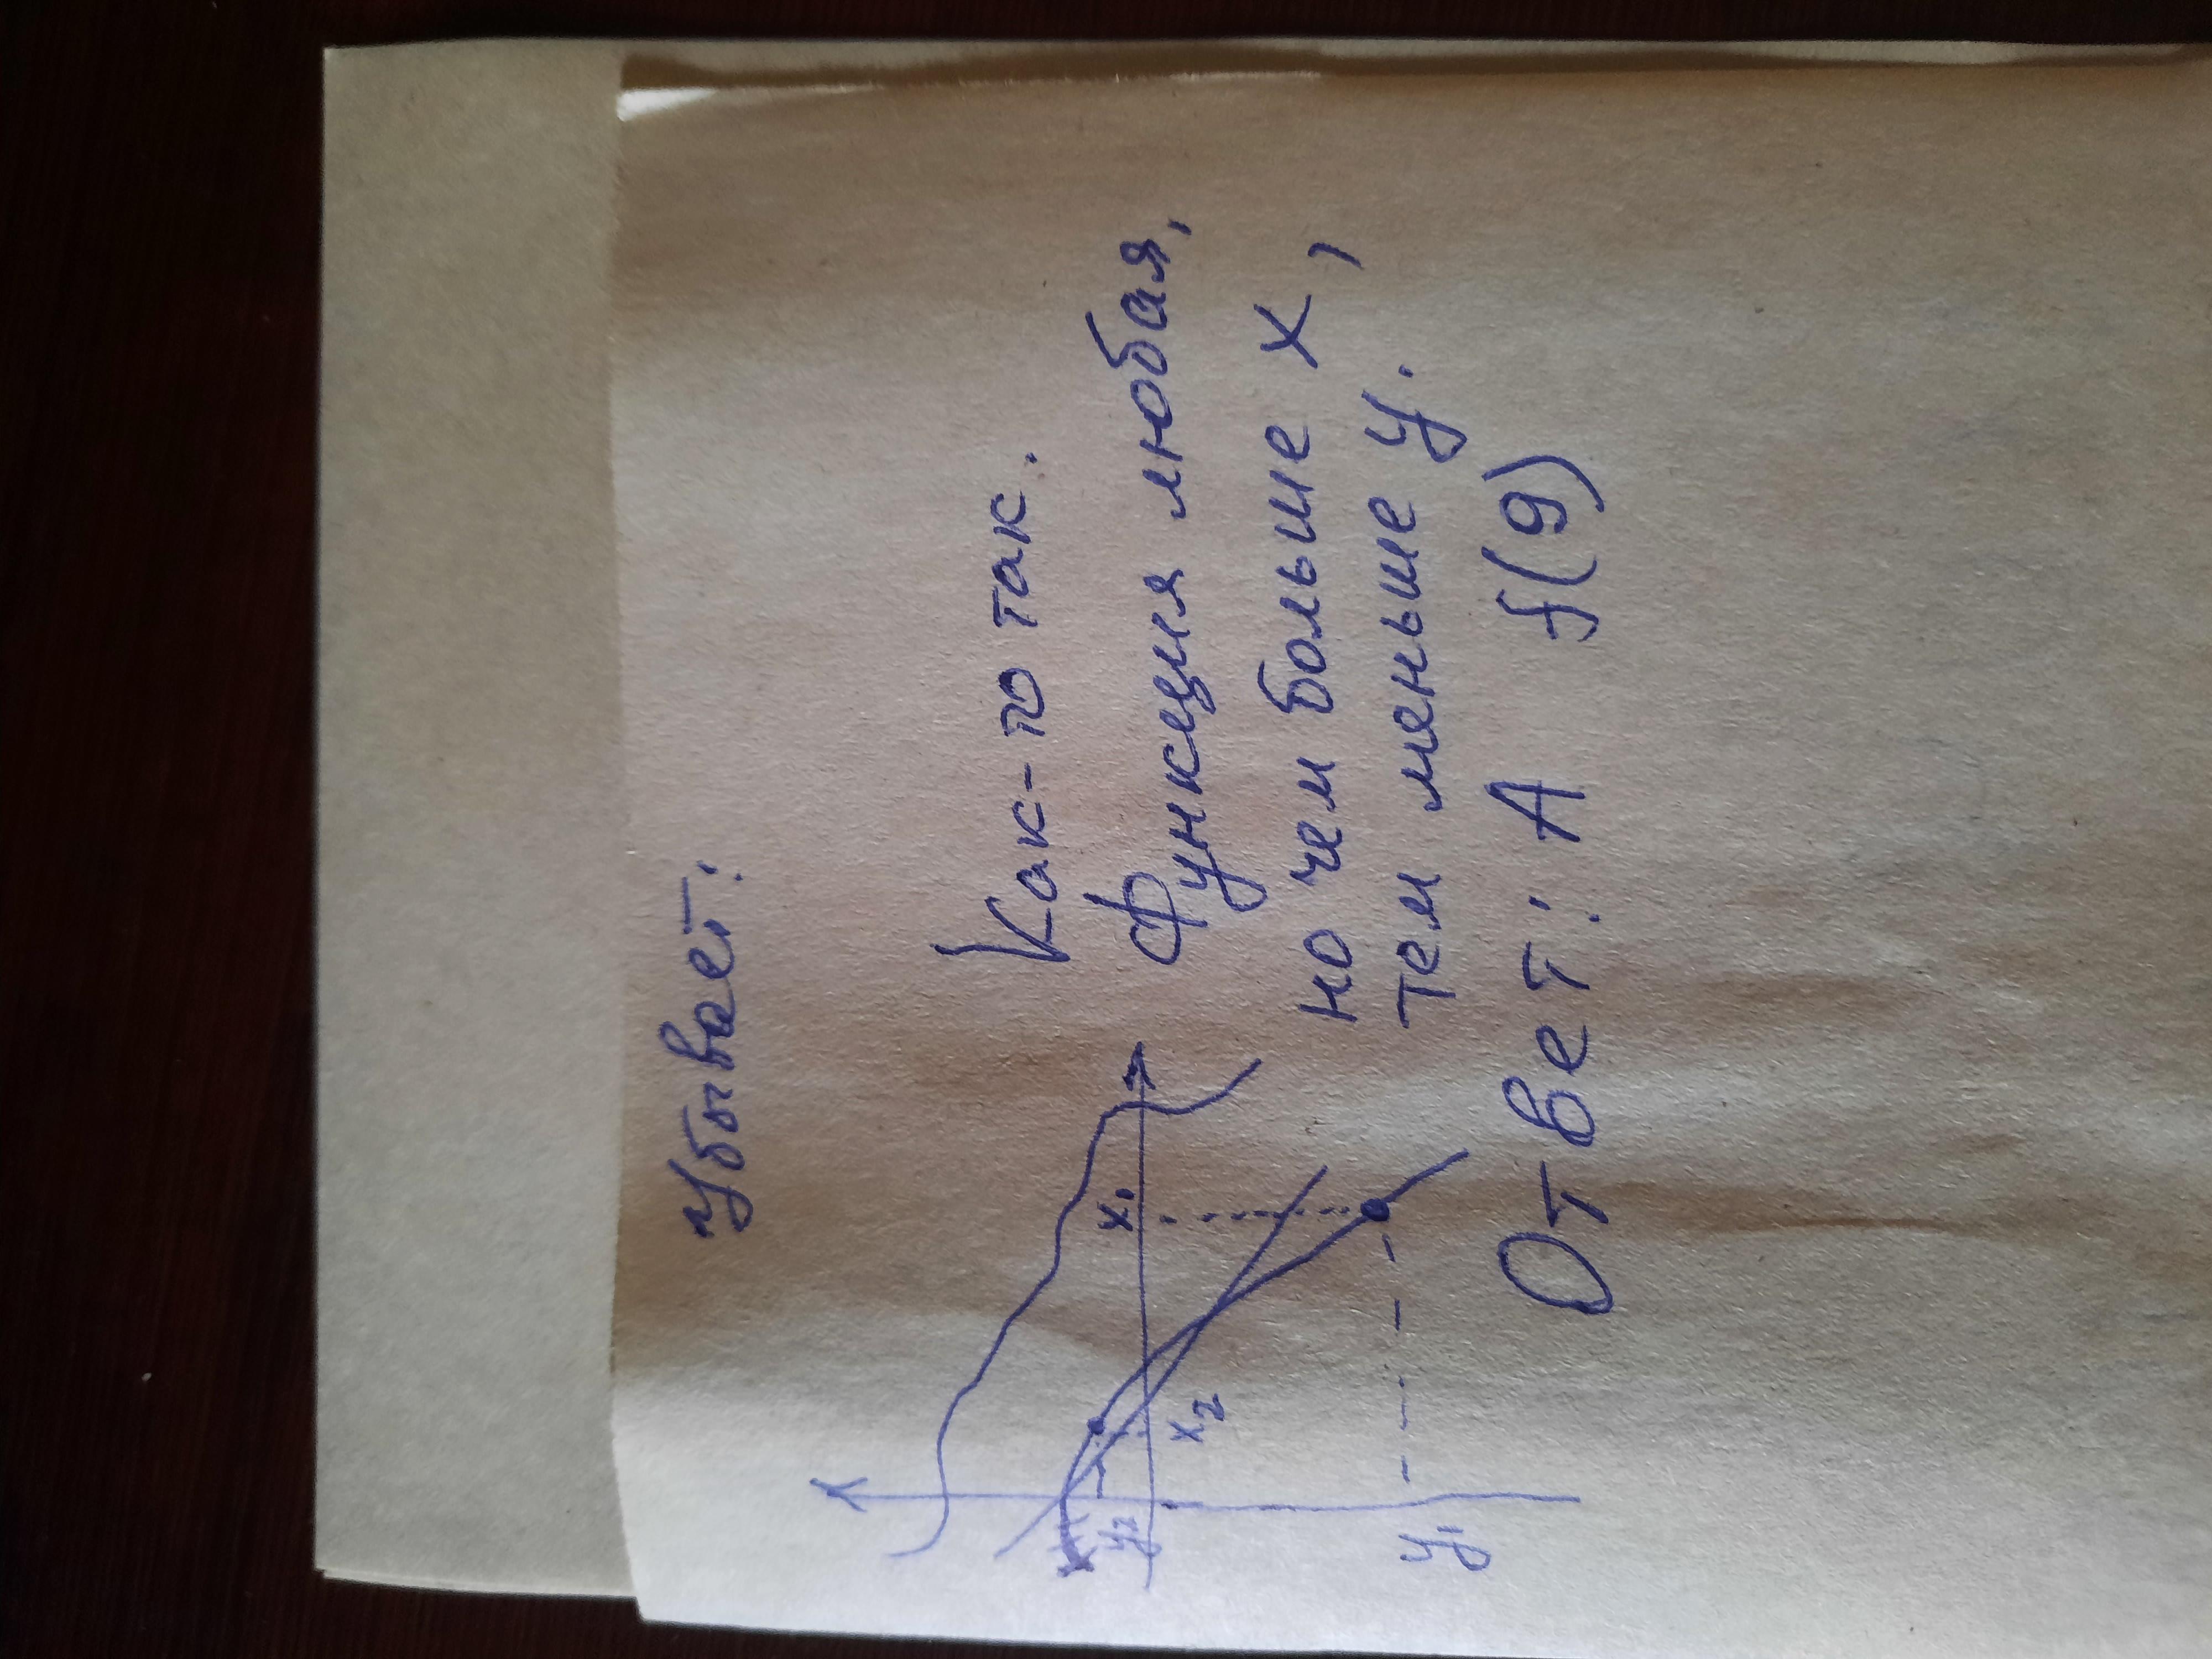 Убывает:
Как-то так.
Функция любая,
но чем больше х,
тем меньше у.
Ответ: А f(9)
x₁
x₂
y₂
y₁